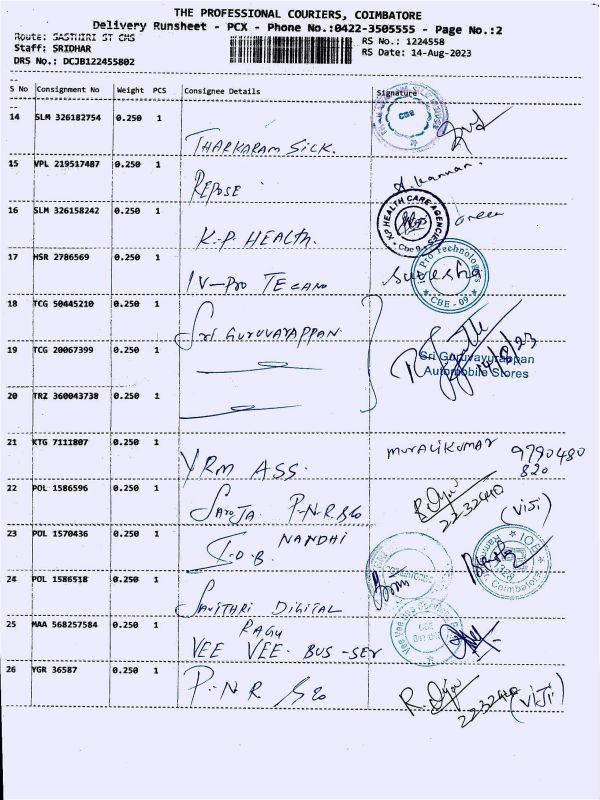 THE PROFESSIONAL COURIERS, COIMBATORE
Delivery Runsheet - PCX - Phone No.:0422-3505555 - Page No.:2
Route: SASTHIRI ST CMS
Staff: SRIDHAR
DRS No.: DCJB122455802
RS No.: 1224558
RS Date: 14-Aug-2023
S No Consignment No Weight PCS Consignee Details Signature
14 SLM 326182754 0.250 1 THARKARAM SILK.
CBE
15 VPL 219517487 0.250 1 REPOSE A. Kannan.
16 SLM 326158242 0.250 1 K.P. HEALTH. Green
KP HEALTH CARE AGENCIES Cbe-9
17 HSR 2786569 0.250 1 IV-Pro TECANO Suresha
Pro Technologies CBE - 09
18 TCG 50445210 0.250 1 Sri GURUVAYAPPAN
14/8/23
19 TCG 20067399 0.250 1
Sri Guruvayurappan
Automobile Stores
20 TRZ 360043738 0.250 1
21 KTG 7111807 0.250 1 VRM ASS. MURALIKUMAR 9790480
820
22 POL 1586596 0.250 1 SAROJA P.N.R. (VIJI)
2232440
23 POL 1570436 0.250 1 I.O.B NANDHI
Coimbatore
24 POL 1586518 0.250 1 SAVITHRI DIGITAL
25 MAA 568257584 0.250 1 RAGU
VEE VEE. BUS-SER
26 YGR 36587 0.250 1 P.N R
2232440 (VIJI)